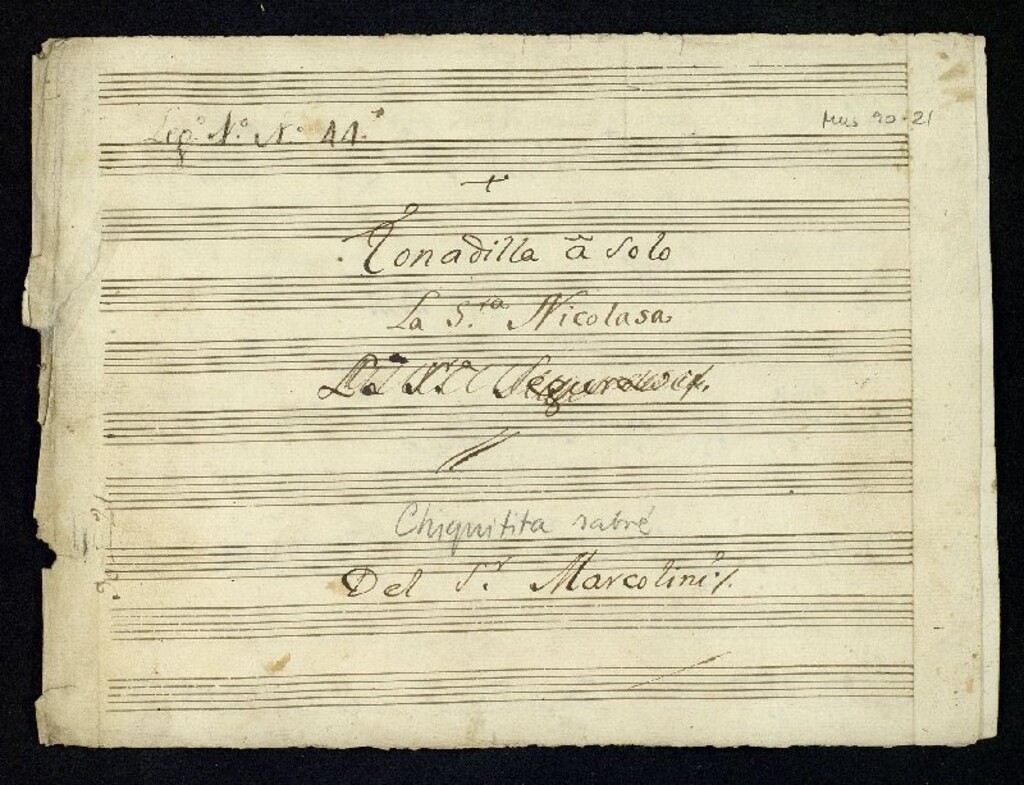 Leg.º N.º N.º 11.
Mus 90-21
Tonadilla â Solo
La S.ra Nicolasa
Chiquitita sabré
Del S.r Marcolini